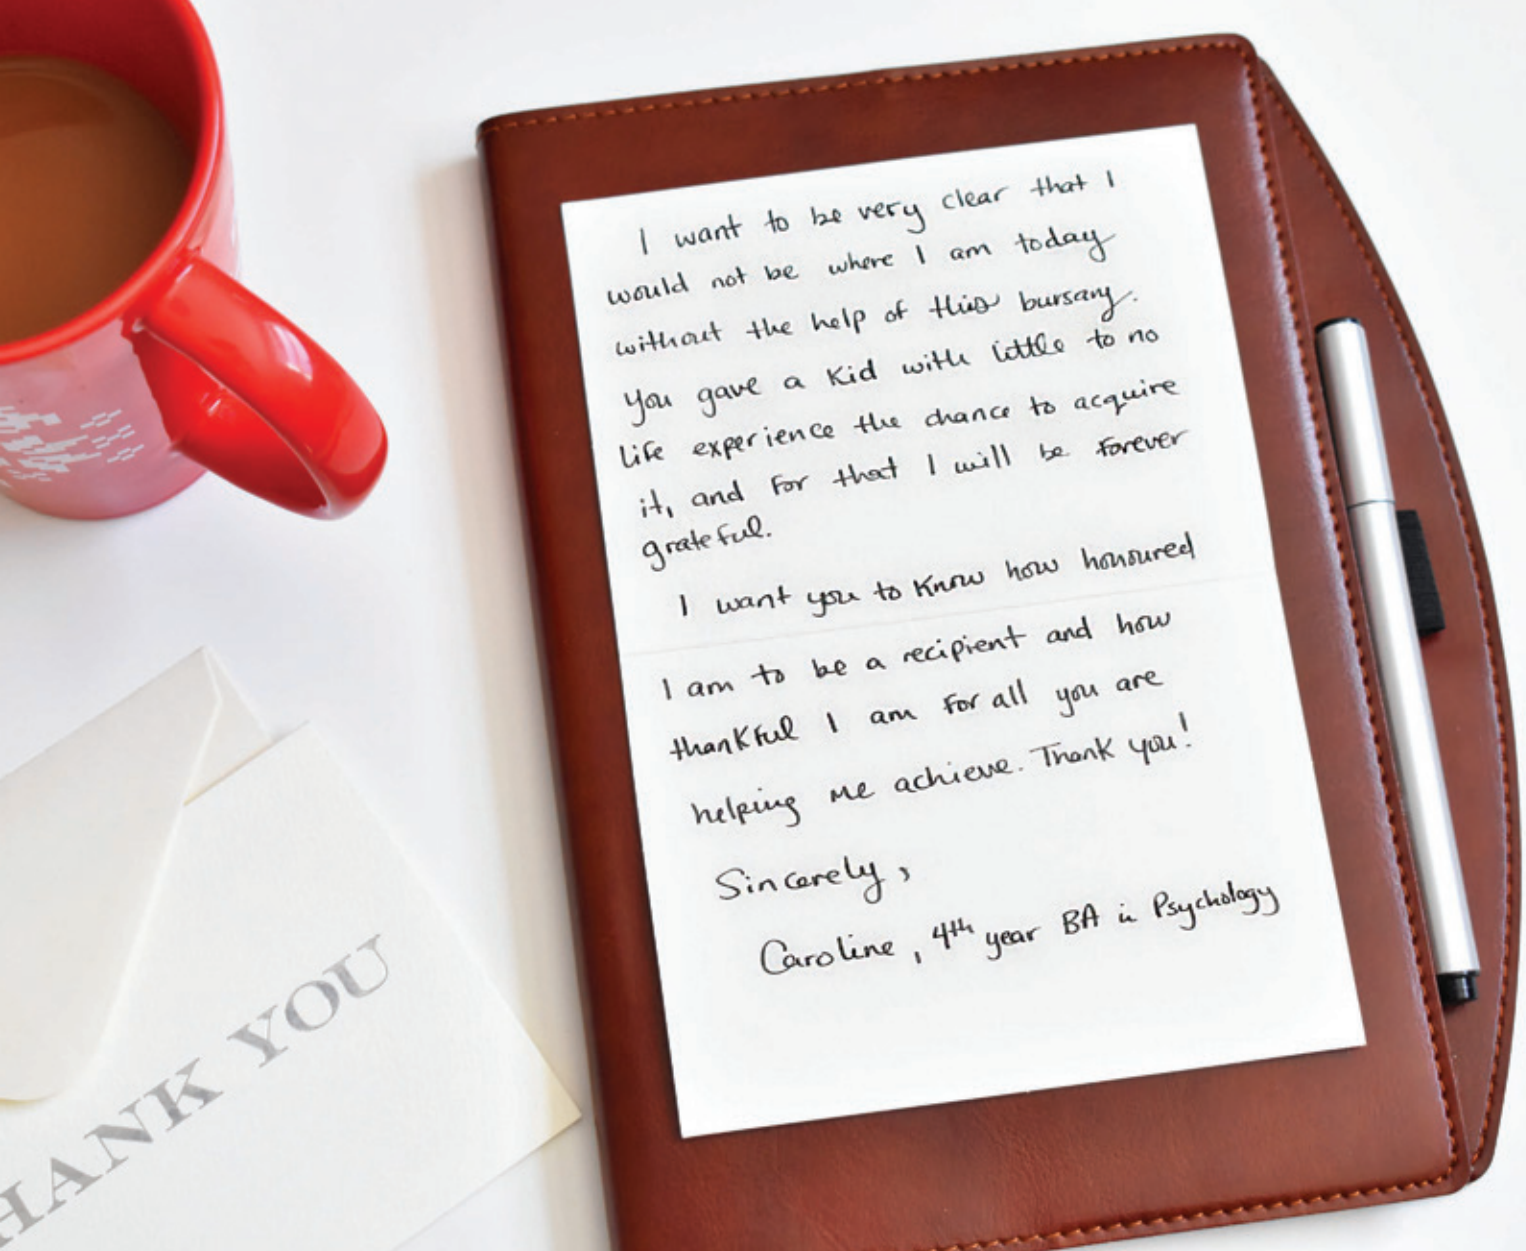 I want to be very clear that I
would not be where I am today
without the help of this bursary.
You gave a kid with little to no
life experience the chance to acquire
it, and for that I will be forever
grateful.
I want you to know how honoured
I am to be a recipient and how
thankful I am for all you are
helping me achieve. Thank you!
Sincerely,
Caroline, 4th year BA in Psychology
HANK YOU